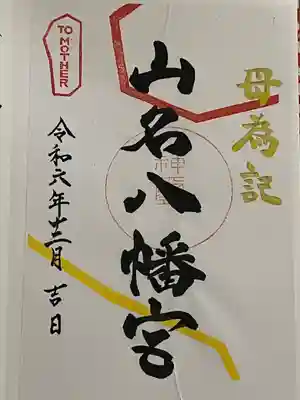 母為記
山名八幡宮
TO MOTHER
令和六年十二月 吉日